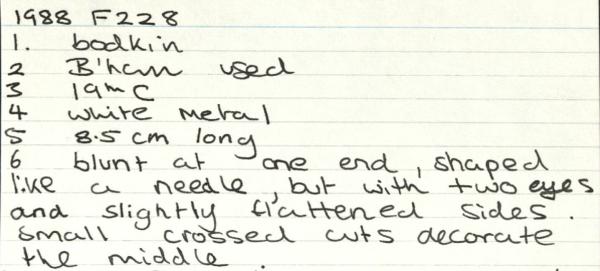 1988 F228
1. bodkin
2 B'ham used
3 19th C
4 white metal
5 8.5 cm long
6 blunt at one end, shaped
like a needle, but with two eyes
and slightly flattened sides.
Small crossed cuts decorate
the middle.